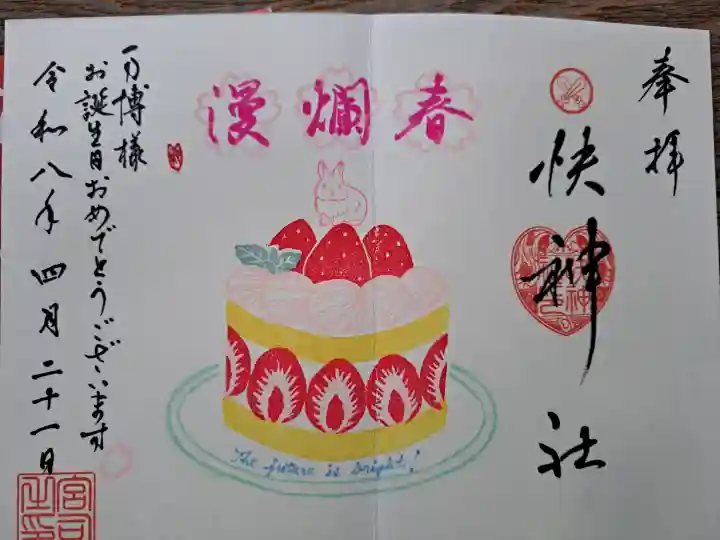 奉拝
快神社
春爛漫
The future is bright!
万博様
お誕生日おめでとうございます
令和八年四月二十一日